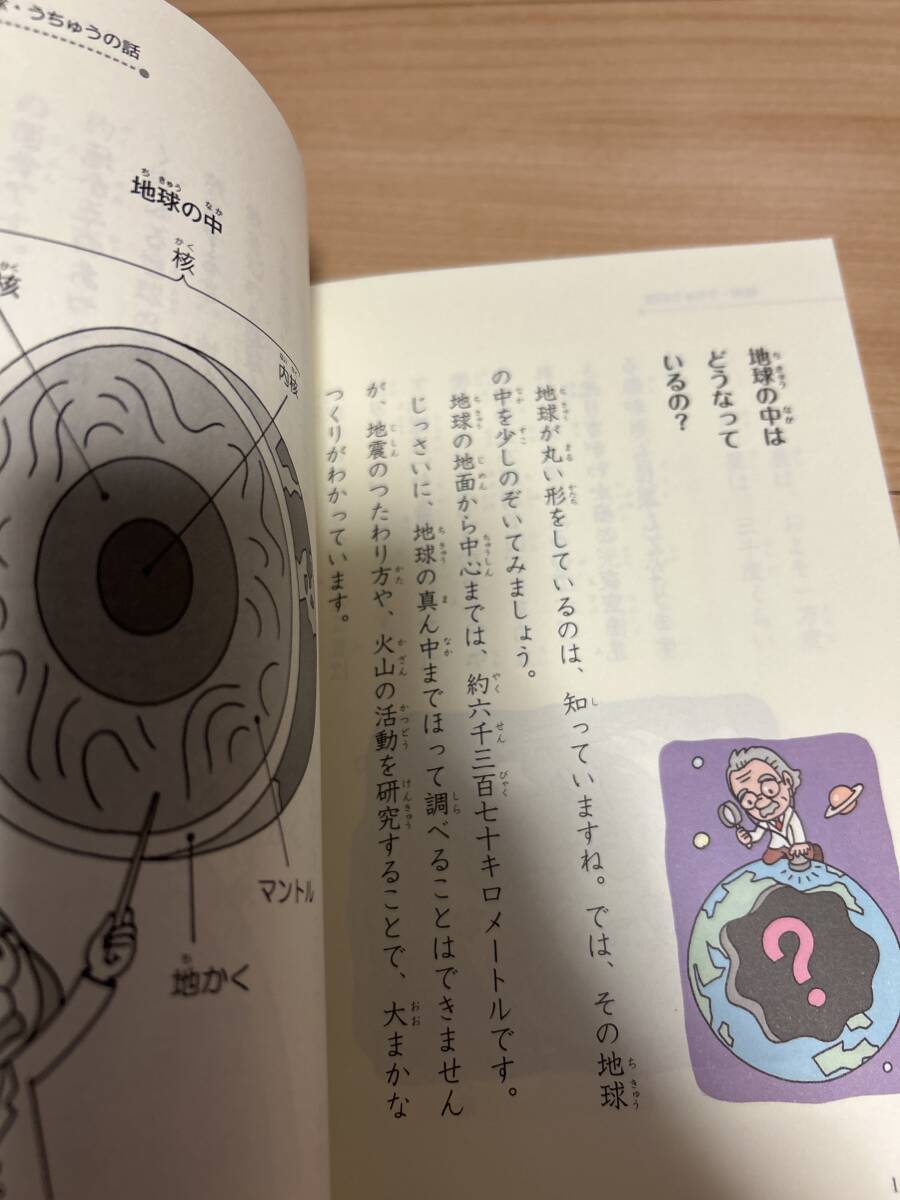 地球の中は
どうなって
いるの？
地球が丸い形をしているのは、知っていますね。では、その地球
の中を少しのぞいてみましょう。
地球の地面から中心までは、約六千三百七十キロメートルです。
じっさいに、地球の真ん中までほって調べることはできません
が、地震のつたわり方や、火山の活動を研究することで、大まかな
つくりがわかっています。
?
・うちゅうの話
地球の中
核
核
内核
マントル
地かく